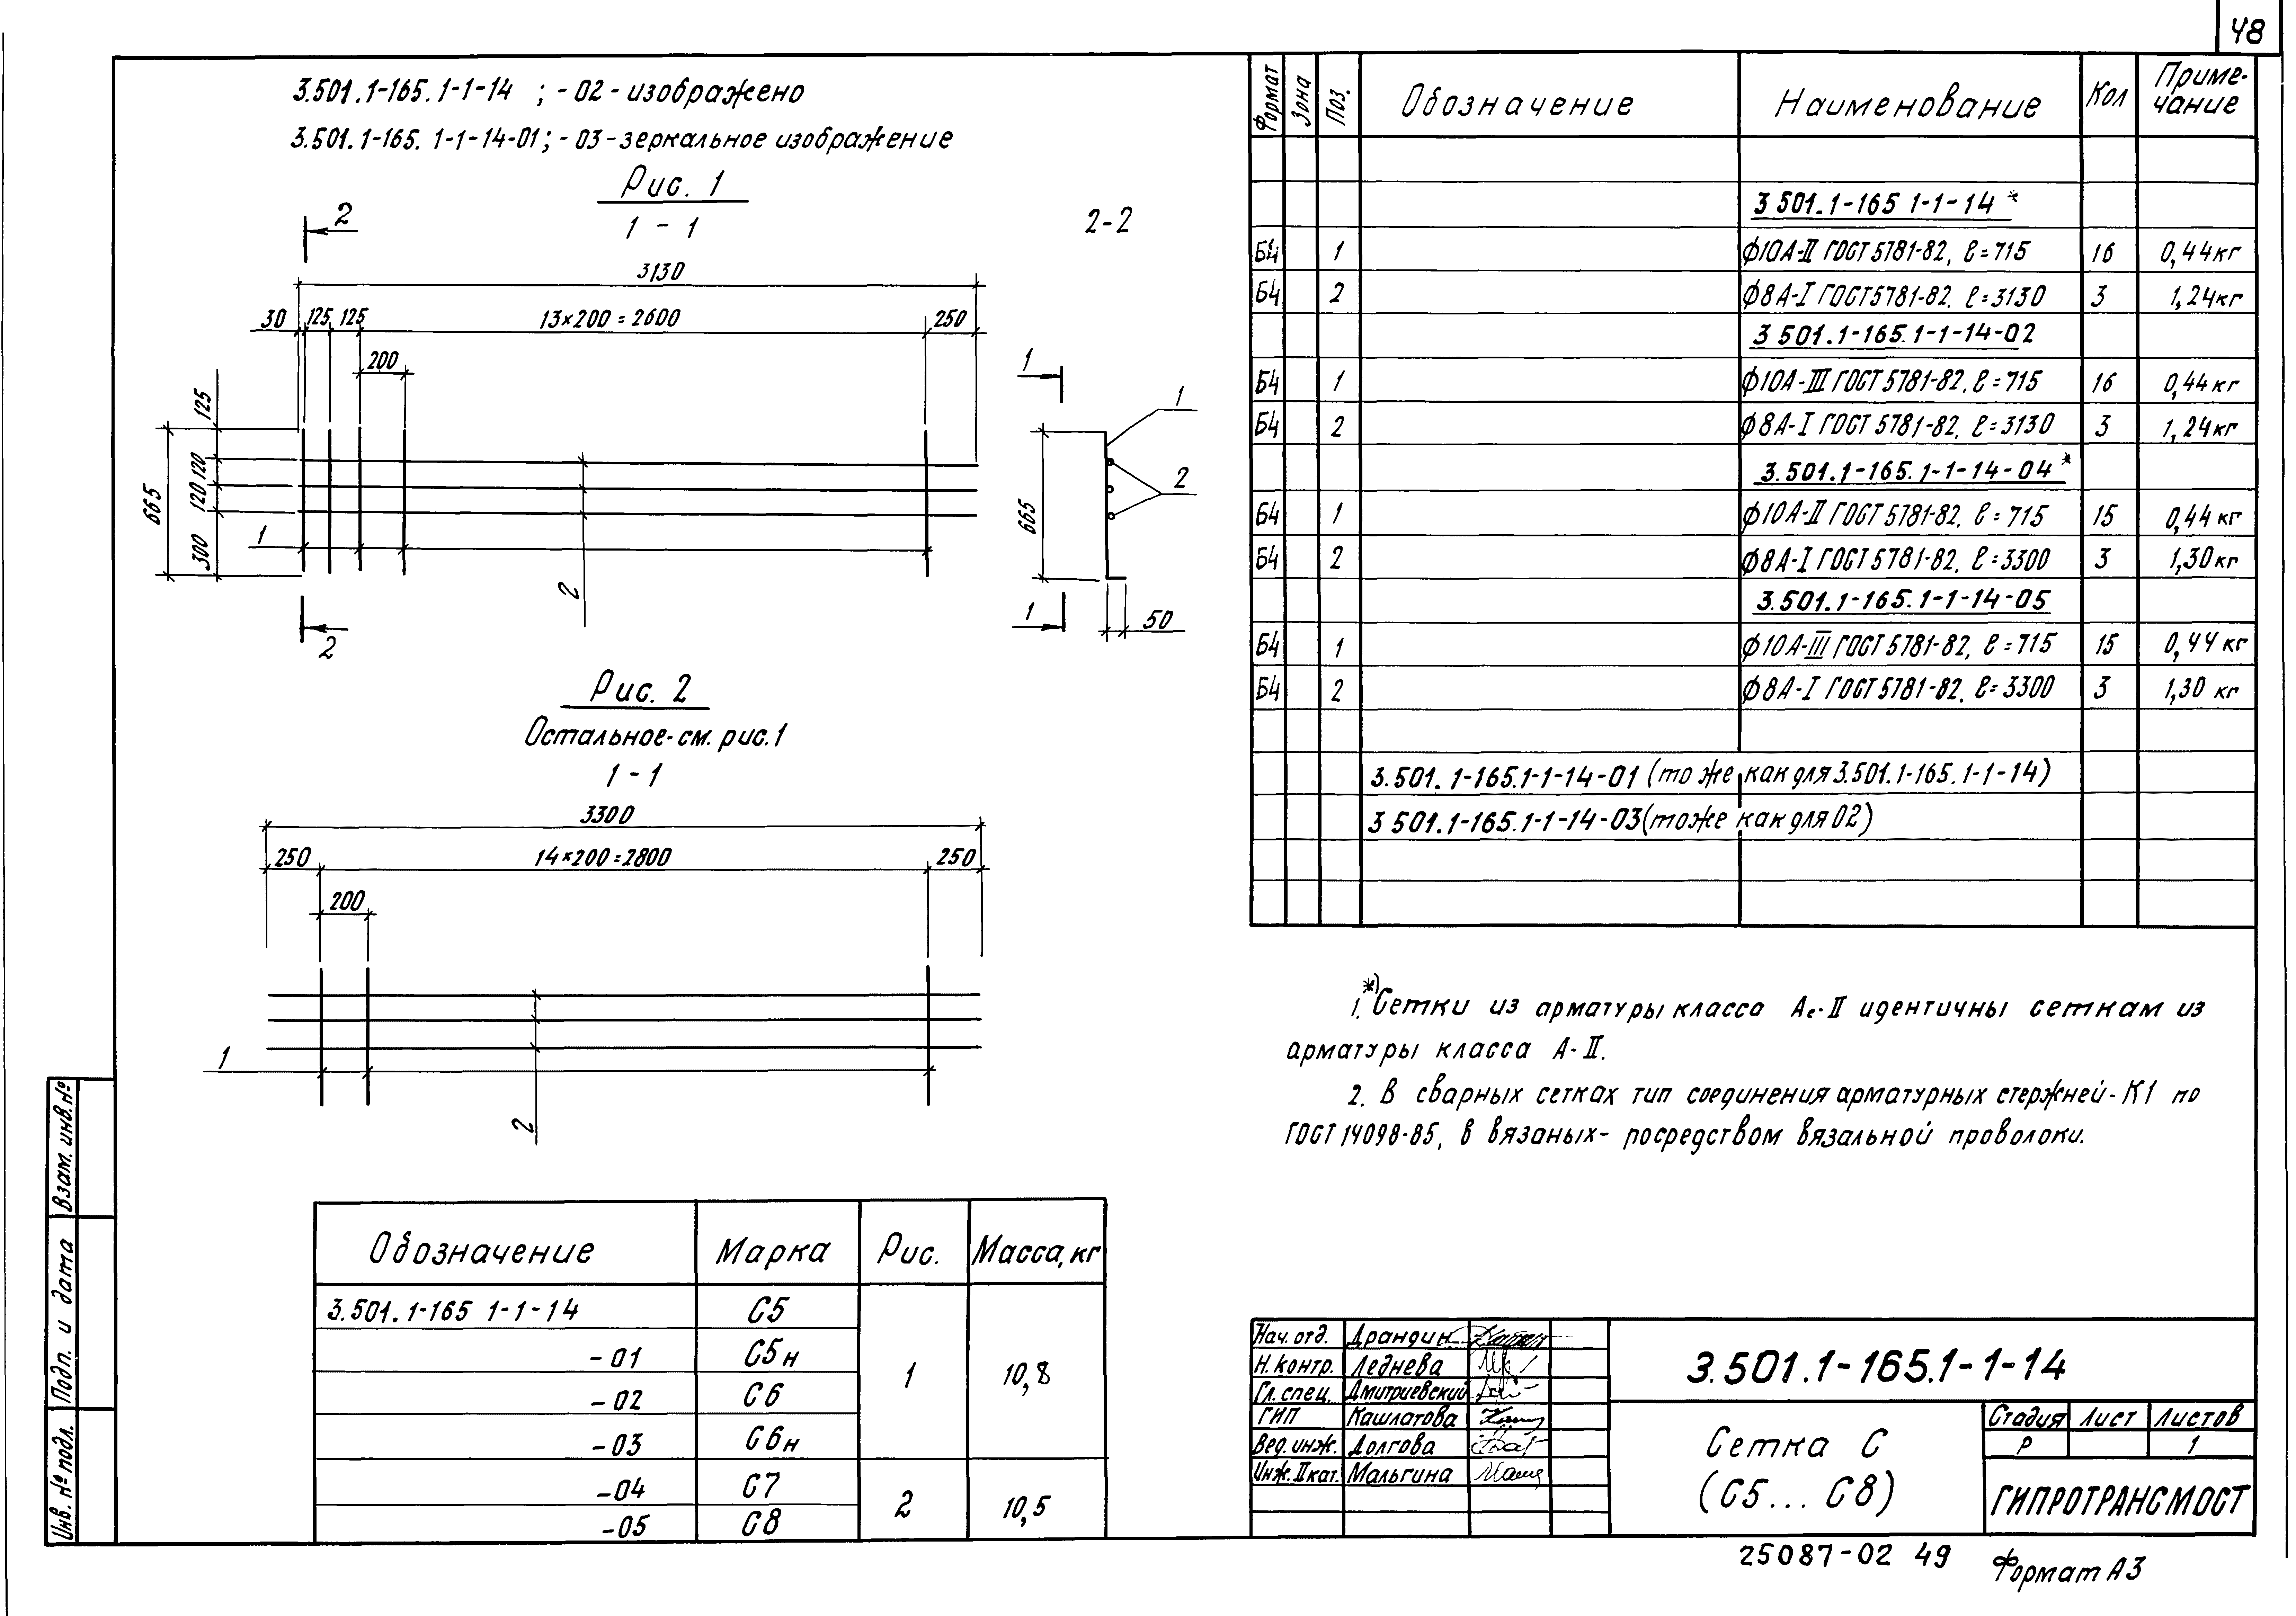 48
3.501.1-165.1-1-14 ; -02-изображено
3.501.1-165. 1-1-14-01; -03-зеркальное изображение
Рис. 1
1 - 1
2-2
2
3130
30 125 125 13×200=2600 250
200
125
120
120
300
665
1
2
2
1
665
1
2
1
50
Рис. 2
Остальное-см. рис.1
1 - 1
3300
250 14×200=2800 250
200
1
2
Обозначение Марка Рис. Масса, кг
3.501.1-165 1-1-14 С5 1 10,8
-01 С5н
-02 С6
-03 С6н
-04 С7 2 10,5
-05 С8
Формат Зона Поз. Обозначение Наименование Кол Приме-
чание
3 501.1-165 1-1-14*
Б4 1 ф10А-II ГОСТ 5781-82, ℓ=715 16 0,44кг
Б4 2 ф8А-I ГОСТ5781-82. ℓ=3130 3 1,24кг
3 501.1-165.1-1-14-02
Б4 1 ф10А-III ГОСТ 5781-82. ℓ=715 16 0,44кг
Б4 2 ф8А-I ГОСТ 5781-82. ℓ=3130 3 1,24кг
3.501.1-165.1-1-14-04*
Б4 1 ф10А-II ГОСТ 5781-82. ℓ=715 15 0,44 кг
Б4 2 ф8А-I ГОСТ 5781-82. ℓ=3300 3 1,30кг
3.501.1-165.1-1-14-05
Б4 1 ф10А-III ГОСТ 5781-82, ℓ=715 15 0,44 кг
Б4 2 ф8А-I ГОСТ 5781-82. ℓ=3300 3 1,30 кг
3.501.1-165.1-1-14-01 (то же как для 3.501.1-165.1-1-14)
3 501.1-165.1-1-14-03(тоже как для 02)
1. *) Сетки из арматуры класса Ас-II идентичны сеткам из
арматуры класса А-II.
2. В сварных сетках тип соединения арматурных стержней-К1 по
ГОСТ 14098-85, в вязаных- посредством вязальной проволоки.
Нач. отд. Драндин
Н. контр. Леднева
Гл. спец. Дмитриевский
ГИП Кашлатова
Вед. инж. Долгова
Инж. II кат. Мальгина
3.501.1-165.1-1-14
Сетка С
(С5... С8)
Стадия Лист Листов
Р 1
ГИПРОТРАНСМОСТ
25087-02 49
Формат А3
Взам. инв. №
Подп. и дата
Инв. № подл.